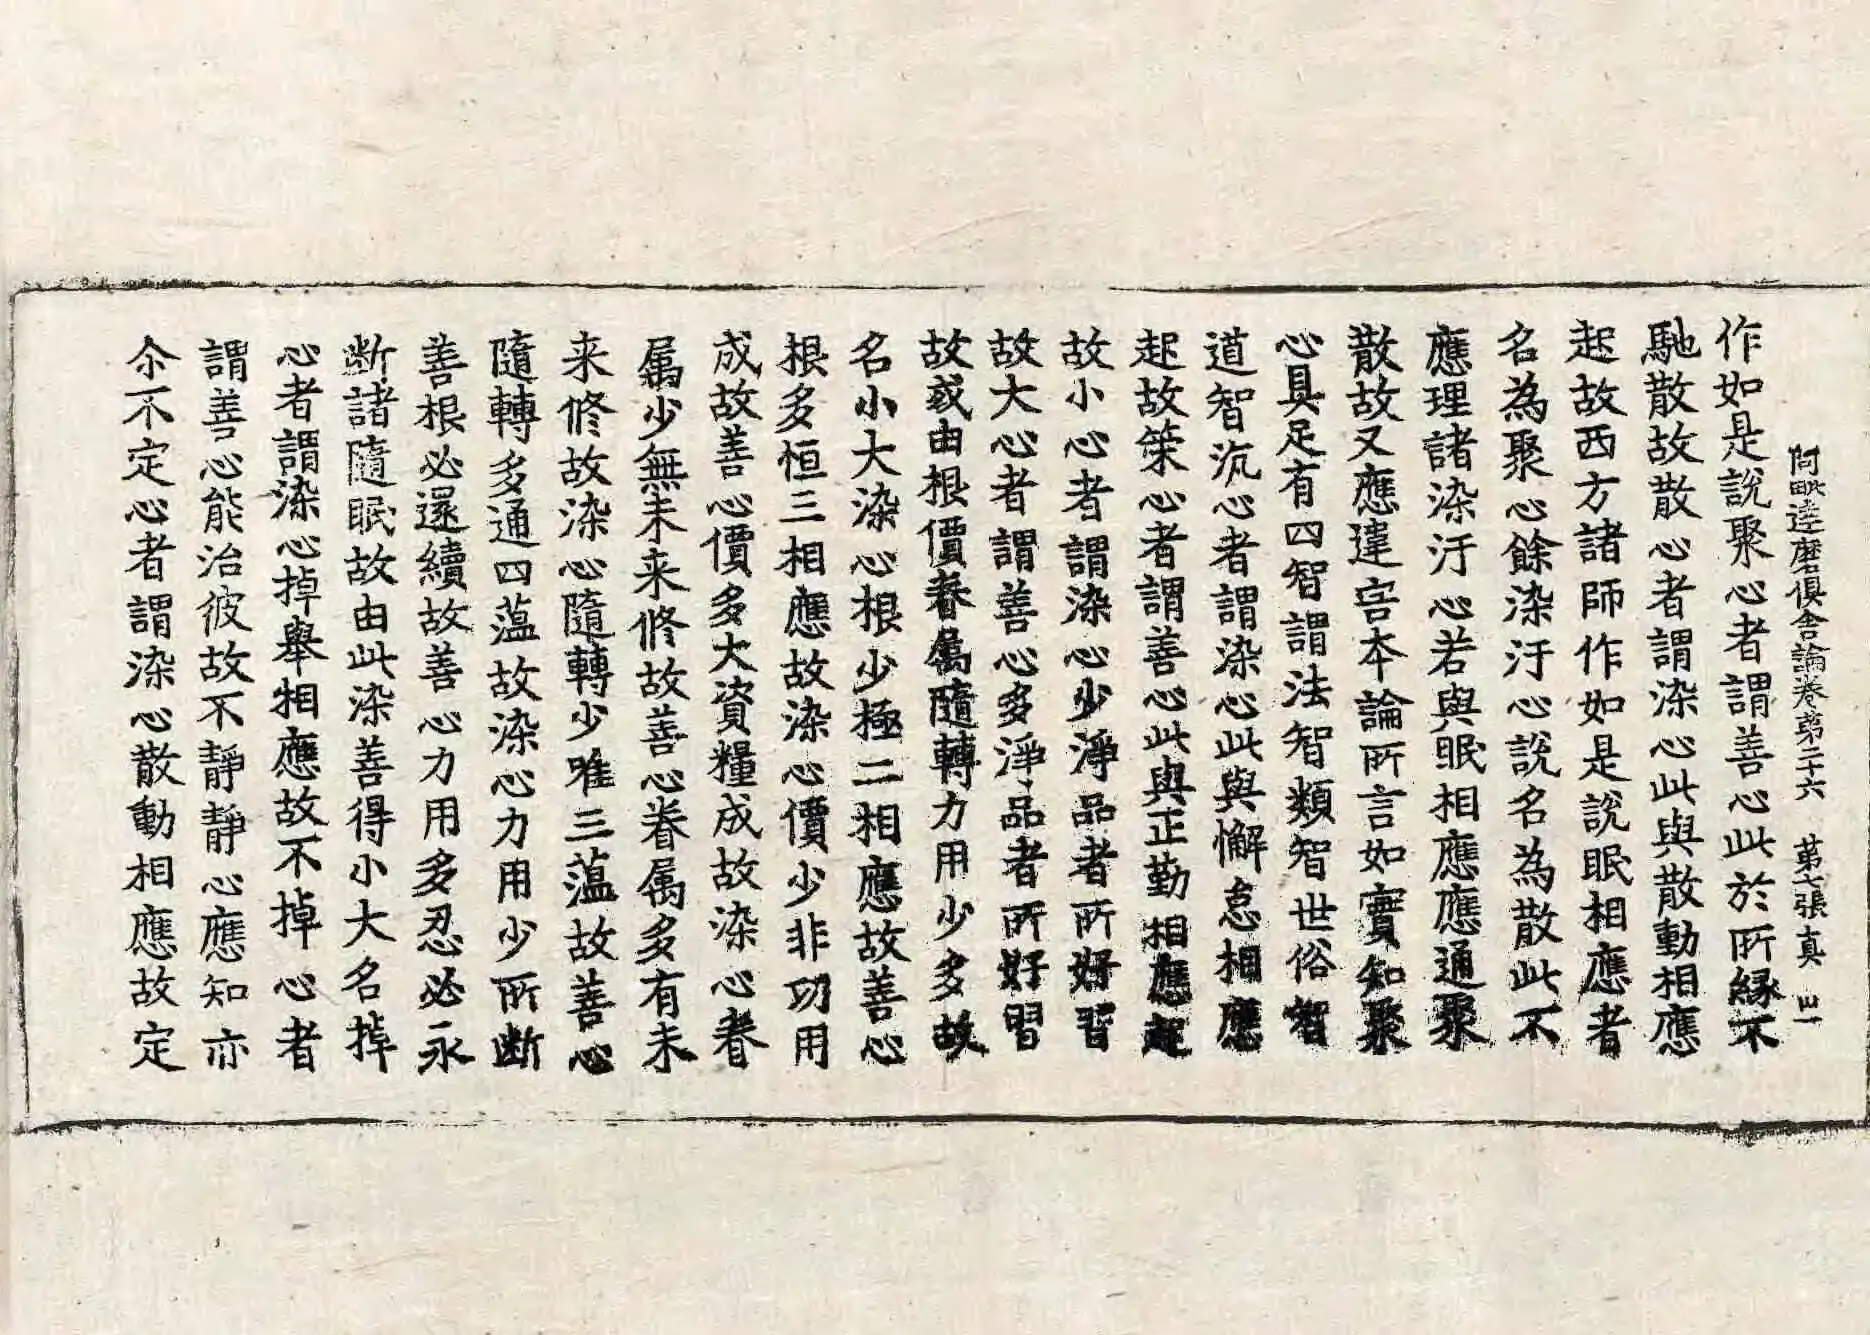 阿毗達磨俱舍論卷第二十六 第七張 真
作如是說聚心者謂善心此於所緣不
馳散故散心者謂染心此與散動相應
起故西方諸師作如是說眠相應者
名為聚心餘染汙心說名為散此不
應理諸染汙心若與眠相應應通聚
散故又應違害本論所言如實知聚
心具足有四智謂法智類智世俗智
道智沉心者謂染心此與懈怠相應
起故策心者謂善心此與正勤相應起
故小心者謂染心少淨品者所好習
故大心者謂善心多淨品者所好習
故或由根價眷属隨轉力用少多故
名小大染心根少極二相應故善心
根多恒三相應故染心價少非功用
成故善心價多大資糧成故染心眷
属少無未来修故善心眷属多有未
来修故染心隨轉少唯三蕴故善心
隨轉多通四蕴故染心力用少所断
善根必還續故善心力用多忍必永
断諸隨眠故由此染善得小大名掉
心者謂染心掉舉相應故不掉心者
謂善心能治彼故不靜靜心應知亦
尒不定心者謂染心散動相應故定